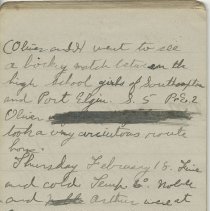 Oliver and I went to see
a hockey match between the
high School girls of Southampton
and Port Elgin. S. 5 P.E. 2
Oliver
took a very circuitous route
home.
Thursday February 15. Fine
and cold Temp 6° Noble
and Arthur were at